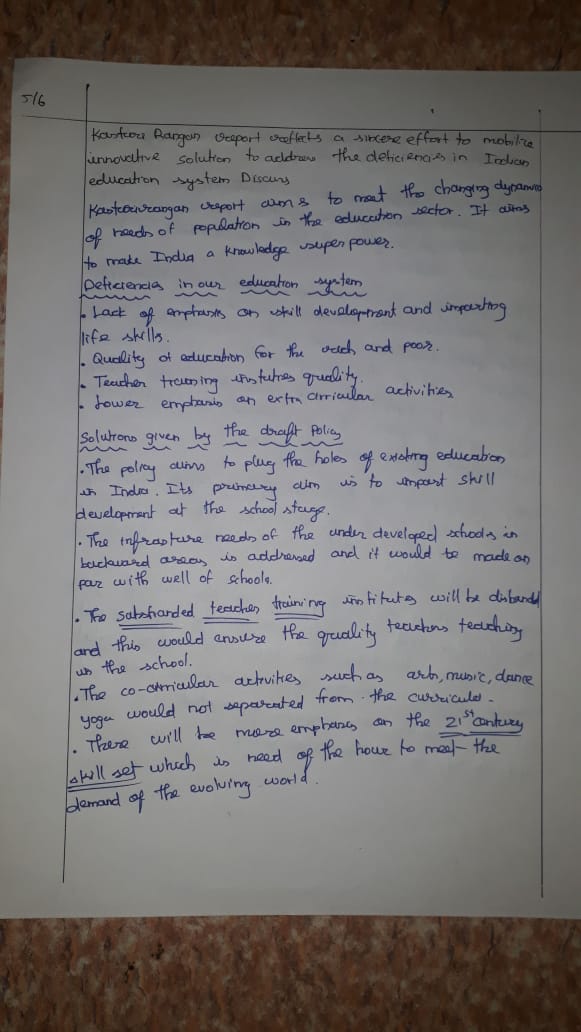 5/6
Kasturi Rangan report reflects a sincere effort to mobilize
innovative solution to address the deficiencies in Indian
education system Discuss
Kasturirangan report aims to meet the changing dynamics
of needs of population in the education sector. It aims
to make India a knowledge super power.
Deficiencies in our education system
. Lack of emphasis on skill development and imparting
life skills.
. Quality of education for the rich and poor.
. Teacher training institutes quality.
. Lower emphasis on extra curricular activities
Solutions given by the draft Policy
. The policy aims to plug the holes of existing education
in India. Its primary aim is to impart skill
development at the school stage.
. The infrasture needs of the under developed schools in
backward areas is addressed and it would be made on
par with well of schools.
. The substranded teacher training institutes will be disband
and this would ensure the quality teachers teaching
in the school.
. The co-curricular activities such as arts, music, dance
yoga would not separated from the curricula.
. There will be more emphasis on the 21st century
skill set which is need of the hour to meet the
demand of the evolving world.